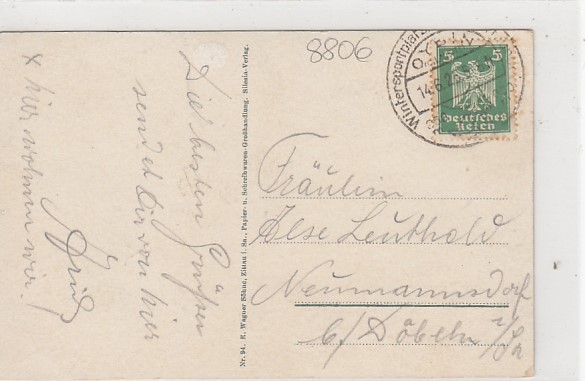 Die besten Grüße
sendet Dir von hier
Fritz
x hier wohnen wir!
Nr. 94. E. Wagner Söhne, Zittau i. Sa., Papier- u. Schreibwaren-Großhandlung. Silesia-Verlag.
8806
Wintersportplatz
OYBIN
14.6.2
5 5
Deutsches
Reich
Fräulein
Ilse Leuthold
Neumannsdorf
b/ Döbeln i/Sa